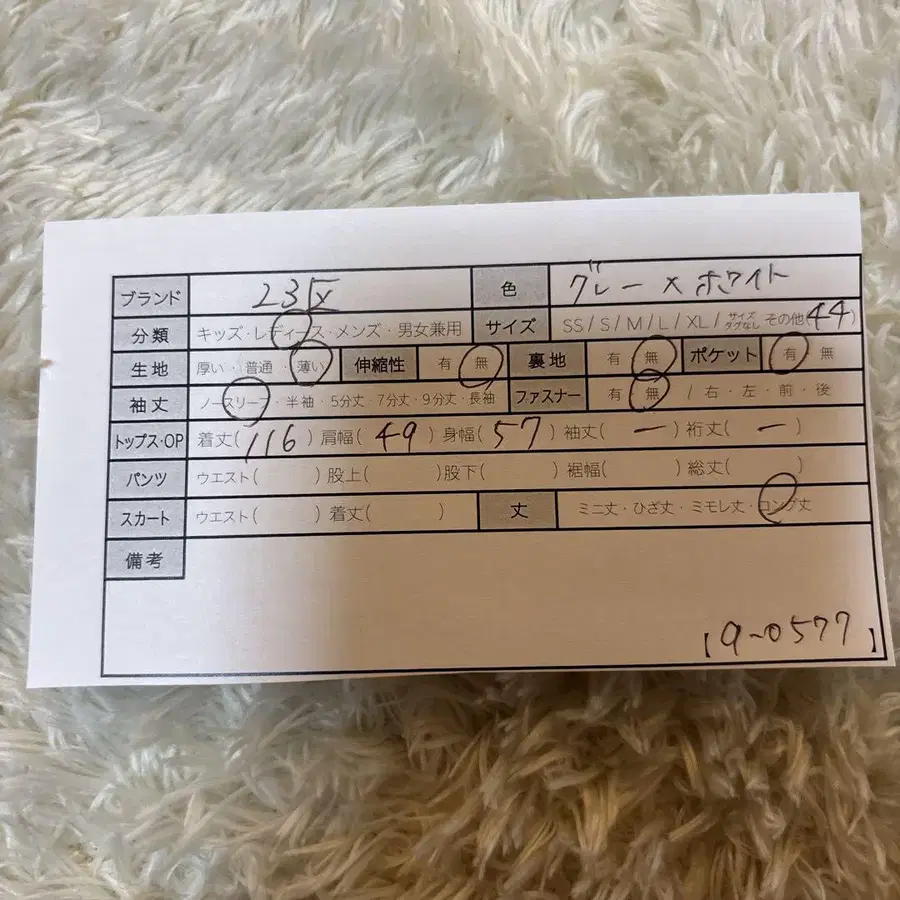 ブランド 23区 色 グレー×ホワイト
分類 キッズ・レディース・メンズ・男女兼用 サイズ SS/S/M/L/XL/サイズタグなし その他(44)
生地 厚い・普通・薄い 伸縮性 有 無 裏地 有 無 ポケット 有 無
袖丈 ノースリーブ・半袖・5分丈・7分丈・9分丈・長袖 ファスナー 有 無 /右・左・前・後
トップス・OP 着丈(116)肩幅(49)身幅(57)袖丈(ー)裄丈(ー)
パンツ ウエスト( )股上( )股下( )裾幅( )総丈( )
スカート ウエスト( )着丈( ) 丈 ミニ丈・ひざ丈・ミモレ丈・ロング丈
備考
【9-0577】